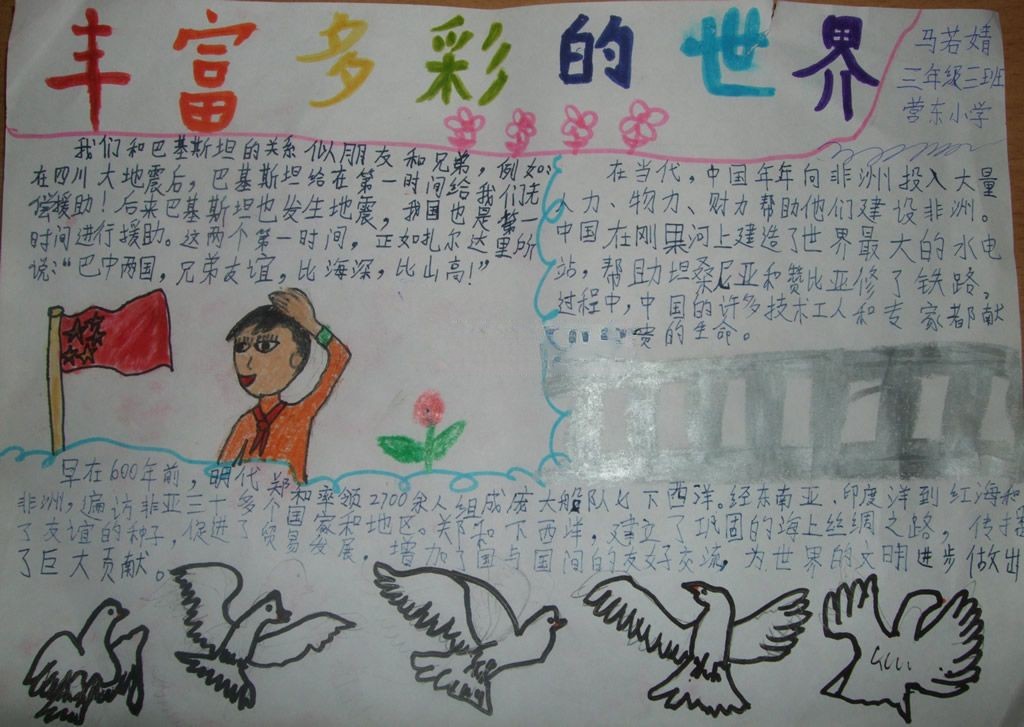 丰富多彩的世界
马若婧
三年级三班
营东小学
我们和巴基斯坦的关系似朋友和兄弟，例如：
在四川大地震后，巴基斯坦给在第一时间给我们无
偿援助！后来巴基斯坦也发生地震，我国也是第一
时间进行援助。这两个第一时间，正如扎尔达里所
说：“巴中两国，兄弟友谊，比海深，比山高！”
在当代，中国年年向非洲投入大量
人力、物力、财力帮助他们建设非洲。
中国在刚果河上建造了世界最大的水电
站，帮助坦桑尼亚和赞比亚修了铁路。
过程中，中国的许多技术工人和专家都献
贵的生命。
早在600年前，明代郑和率领2700余人组成庞大船队七下西洋。经东南亚、印度洋到红海和
非洲，遍访非亚三十多个国家和地区。郑和下西洋，建立了巩固的海上丝绸之路，传播
了友谊的种子，促进了贸易发展，增加了国与国间的友好交流，为世界的文明进步做出
了巨大贡献。